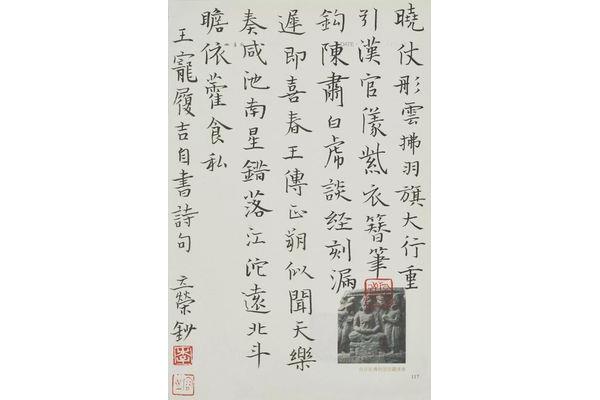 曉仗彤雲拂羽旗大行重
引漢官儀紫衣簪筆
鈎陳肅白虎談经刻漏
遲即喜春王傳正朔似聞天樂
奏咸池南星錯落江沱遠北斗
瞻依藿食私
王寵履吉自書詩句 立榮鈔
DATE
117